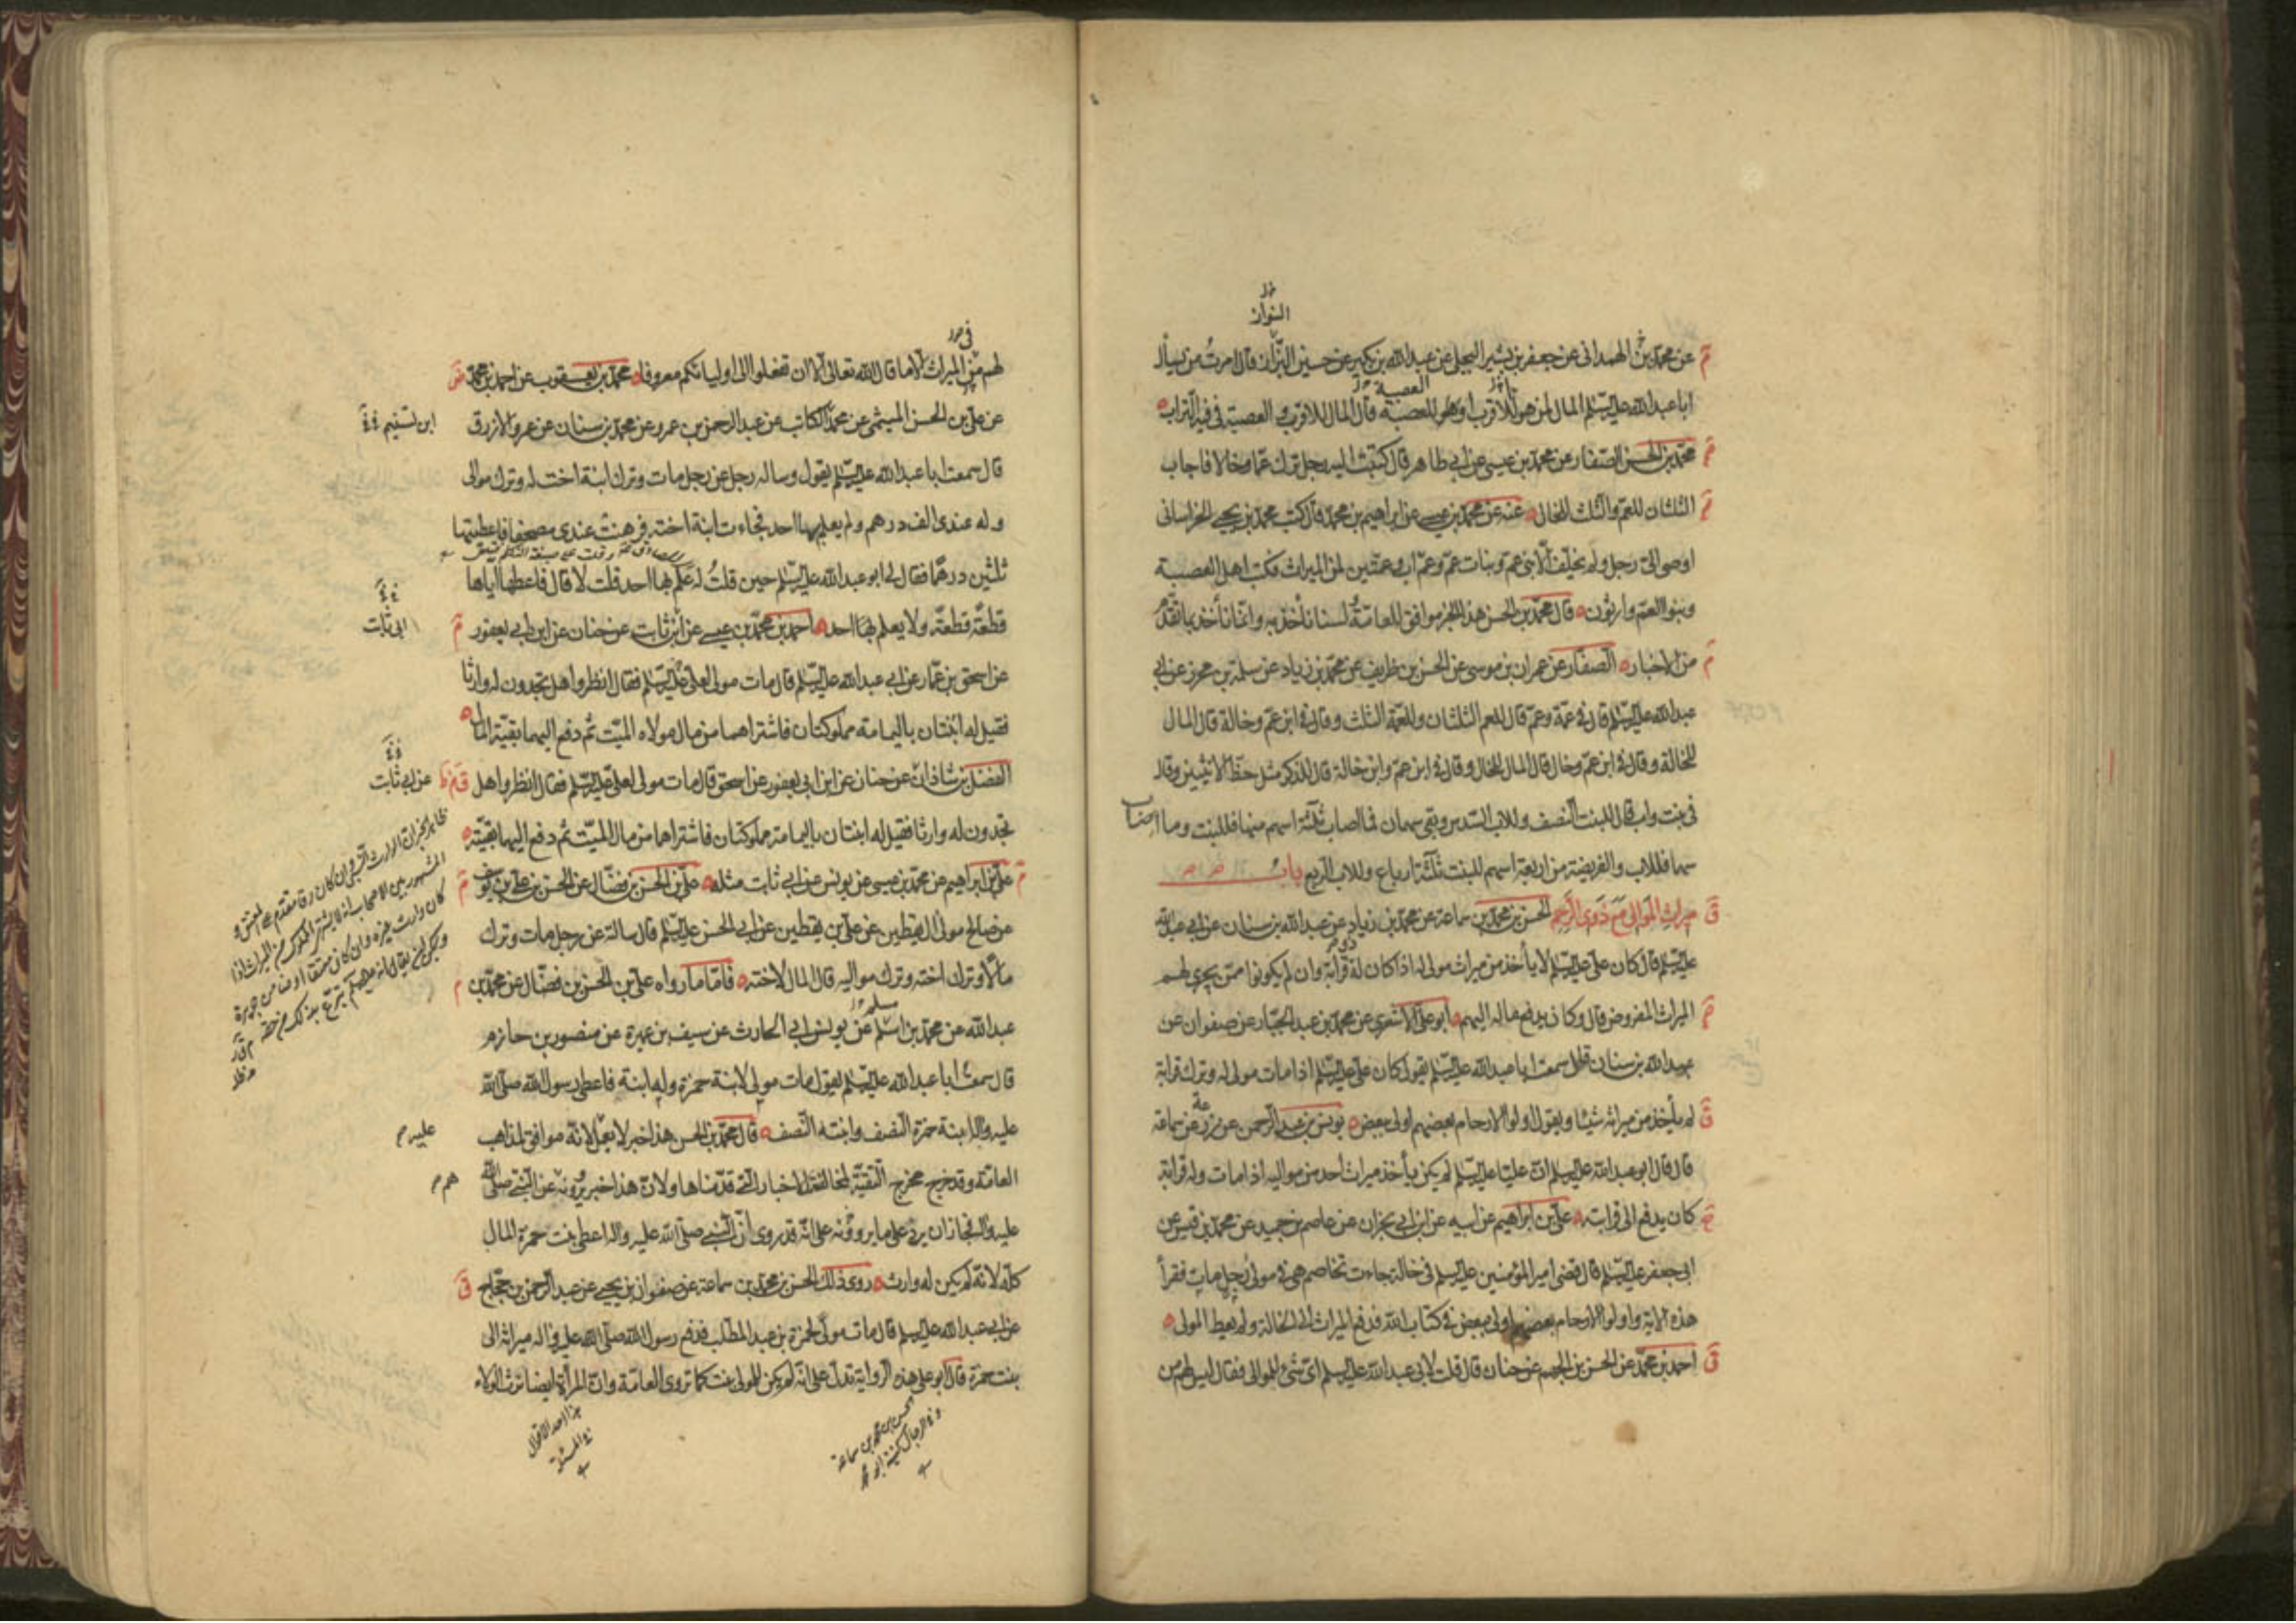 النوان
عن محمد بن الهمدانى عن جعفر بن بشير البجلى عن عبدالله بن بكير عن حسين البزان قال امرت من يسأل
اباعبدالله عليه السلام المال لمن هو للاقرب او للعصبة قال المال للاقرب و العصبة فى فيه التراب
محمد بن الحسن الصفار عن محمد بن عيسى عن ابى طاهر قال كتبت اليه رجل ترك عما وخالا فاجاب
الثلثان للعم والثلث للخال عنه عن محمد بن عيسى عن ابراهيم بن محمد قال كتب محمد بن يحيى الخراسانى
اوصى الىّ رجل ولم يخلف الا بنى عم وبنات عم وعم اب وعمتين لمن الميراث فكتب اهل العصبة
وبنوا العم وارثون قال محمد بن الحسن هذا الخبر موافق للعامة لسنا نأخذ به وانما نأخذ بما تقدم
من الاخبار الصفار عن عمران بن موسى عن الحسن بن ظريف عن محمد بن زياد عن سلمة بن محرز عن ابى
عبدالله عليه السلام قال فى عمة وعم قال للعم الثلثان وللعمة الثلث وقال فى ابن عم وخالة قال المال
للخالة وقال فى ابن عم وخال قال المال للخال وقال فى ابن عم وابن خالة قال للذكر مثل حظ الانثيين وقال
فى بنت واب قال للبنت النصف وللاب السدس وبقى سهمان فما اصاب ثلثة اسهم منها فللبنت وما اصاب
سهما فللاب والفريضة من اربعة اسهم للبنت ثلثة ارباع وللاب الربع باب
ميراث الموالى مع ذوى الرحم الحسن بن محمد بن سماعة عن محمد بن زياد عن عبدالله بن سنان عن ابى عبدالله
عليه السلام قال كان على عليه السلام لا يأخذ من ميراث مولى له اذا كان له قرابة وان لم يكونوا ممن يجرى لهم
الميراث المفروض قال وكان يدفع ماله اليهم ابوعلى الاشعرى عن محمد بن عبدالجبار عن صفوان عن
عبدالله بن سنان قال سمعت اباعبدالله عليه السلام يقول كان على عليه السلام اذا مات مولى له وترك قرابة
لم يأخذ من ميراثه شيئا ويقول اولوا الارحام بعضهم اولى ببعض يونس بن عبدالرحمن عن زرعة عن سماعة
قال قال ابوعبدالله عليه السلام ان عليا عليه السلام لم يكن يأخذ ميراث احد من مواليه اذا مات وله قرابة
كان يدفع الى قرابته على بن ابراهيم عن ابيه عن ابن ابى نجران عن عاصم بن حميد عن محمد بن قيس عن
ابى جعفر عليه السلام قال قضى امير المؤمنين عليه السلام فى خالة جاءت تخاصم فى مولى رجل مات فقرأ
هذه الاية واولوا الارحام بعضهم اولى ببعض فى كتاب الله فدفع الميراث الى الخالة ولم يعط المولى
احمد بن محمد عن الحسن بن الجهم عن حنان قال قلت لابى عبدالله عليه السلام اى شئ للموالى فقال ليس لهم من
لهم من الميراث الا ما قال الله تعالى الا ان تفعلوا الى اوليائكم معروفا محمد بن يعقوب عن احمد بن محمد
عن على بن الحسن الميثمى عن محمد الكاتب عن عبدالرحمن بن عمرو عن محمد بن سنان عن عمرو الازرق
قال سمعت اباعبدالله عليه السلام يقول وساله رجل عن رجل مات وترك ابنة اخت له وترك موالى
وله عندى الف درهم ولم يعلم بها احد فجاءت ابنة اخته فرهنت عندى مصحفا فاعطيتها
ثلثين درهما فقال لى ابو عبدالله عليه السلام حين قلت له علم بها احد قلت لا قال فاعطها اياها
قطعة قطعة ولا يعلم بها احد احمد بن محمد بن عيسى عن ابن ثابت عن حنان عن ابن ابى يعفور
ابى ثابت
عن اسحق بن عمار عن ابى عبدالله عليه السلام قال مات مولى لعلى عليه السلام فقال انظروا هل تجدون له وارثا
فقيل له ابنتان باليمامة مملوكتان فاشتراهما من مال مولاه الميت ثم دفع اليهما بقية المال
الفضل بن شاذان عن حنان عن ابن ابى يعفور عن اسحق قال مات مولى لعلى عليه السلام فقال انظروا هل
عن ابى ثابت
تجدون له وارثا فقيل له ابنتان باليمامة مملوكتان فاشتراهما من مال الميت ثم دفع اليهما بقيته
على بن ابراهيم عن محمد بن عيسى عن يونس عن ابى ثابت مثله على بن الحسن بن فضال عن الحسن بن على بن يوسف
عن صالح مولى ال يقطين عن على بن يقطين عن ابى الحسن عليه السلام قال سالته عن رجل مات وترك
مالا وترك اخته وترك مواليه قال المال لاخته فاما ما رواه على بن الحسن بن فضال عن محمد بن
عبدالله عن محمد بن اسلم عن يونس ابى الحارث عن سيف بن عميرة عن منصور بن حازم
قال سمعت اباعبدالله عليه السلام يقول مات مولى لابنة حمزة وله ابنة فاعطى رسول الله صلى الله
عليه واله ابنة حمزة النصف وابنته النصف قال محمد بن الحسن هذا خبر لا يعمل لانه موافق لمذاهب
عليه
العامة وقد خرج مخرج التقية لمخالفته الاخبار التى قدمناها ولان هذا خبر يروونه عن النبى صلى الله
هم
عليه واله فجاز ان يرد على ما يروونه على انه قد روى ان النبى صلى الله عليه واله اعطى بنت حمزة المال
كله لانه لم يكن له وارث روى ذلك الحسن بن محمد بن سماعة عن صفوان بن يحيى عن عبدالرحمن بن حجاج
عن ابى عبدالله عليه السلام قال مات مولى لحمزة بن عبدالمطلب فدفع رسول الله صلى الله عليه واله ميراثه الى
بنت حمزة قال ابو على هذه الرواية تدل على انه لم يكن للمولى بنت كما تروى العامة وان المرأة ايضا ترث الولاء
الحسن بن محمد بن سماعة
هذا احد الاقوال